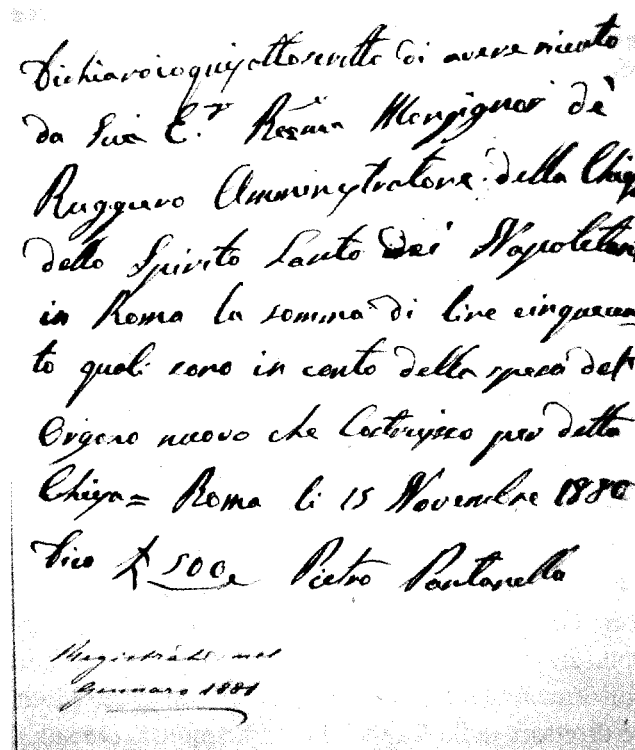 Dichiaro io qui sottoscritto di avere ricevuto
da Sua E.r Re͞ma Monsignor de
Ruggiero Amministratore della Chiesa
dello Spirito Santo dei Napoletani
in Roma la somma di lire cinquecen
to quali sono in conto della spesa del
Organo nuovo che Costruisco per detta
Chiesa = Roma li 15 Novembre 1880
Dico £ 500 Pietro Pantanella
Registrate nel
Gennaro 1881